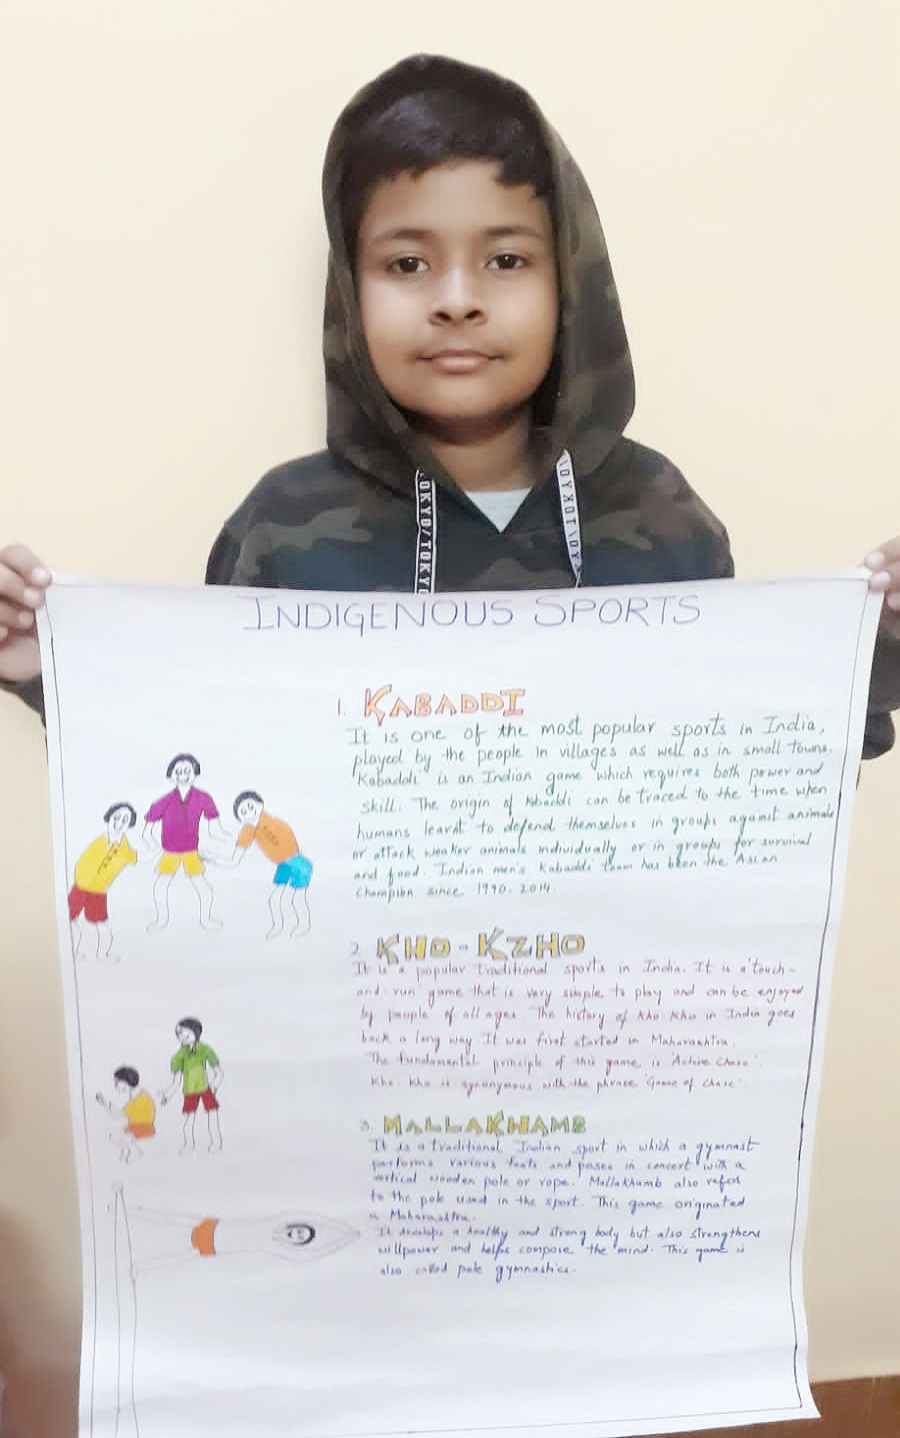 OKYO/TOKYO
TOKYO
INDIGENOUS SPORTS
1. KABADDI
It is one of the most popular sports in India,
played by the people in villages as well as in small towns.
Kabaddi is an Indian game which requires both power and
skill. The origin of Kabaddi can be traced to the time when
humans learnt to defend themselves in groups against animals
or attack weaker animals individually or in groups for survival
and food. Indian men's Kabaddi team has been the Asian
Champion since 1990-2014.
2. KHO-KZHO
It is a popular traditional sports in India. It is a 'touch-
and-run' game that is very simple to play and can be enjoyed
by people of all ages. The history of Kho-Kho in India goes
back a long way. It was first started in Maharashtra.
The fundamental principle of this game is 'Active Chase'.
Kho-Kho is synonymous with the phrase 'Game of Chase'.
3. MALLAKHAMB
It is a traditional Indian sport in which a gymnast
performs various feats and poses in concert with a
vertical wooden pole or rope. Mallakhamb also refers
to the pole used in the sport. This game originated
in Maharashtra.
It develops a healthy and strong body but also strengthens
willpower and helps compose the mind. This game is
also called pole gymnastics.